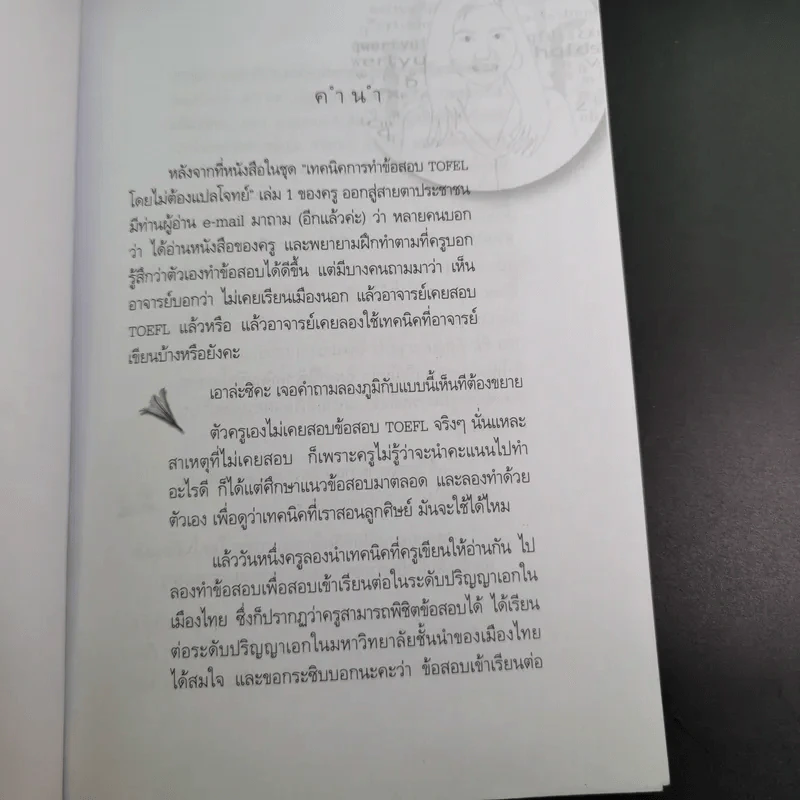 คำนำ
หลังจากที่หนังสือในชุด "เทคนิคการทำข้อสอบ TOFEL
โดยไม่ต้องแปลโจทย์" เล่ม 1 ของครู ออกสู่สายตาประชาชน
มีท่านผู้อ่าน e-mail มาถาม (อีกแล้วค่ะ) ว่า หลายคนบอก
ว่า ได้อ่านหนังสือของครู และพยายามฝึกทำตามที่ครูบอก
รู้สึกว่าตัวเองทำข้อสอบได้ดีขึ้น แต่มีบางคนถามมาว่า เห็น
อาจารย์บอกว่า ไม่เคยเรียนเมืองนอก แล้วอาจารย์เคยสอบ
TOEFL แล้วหรือ แล้วอาจารย์เคยลองใช้เทคนิคที่อาจารย์
เขียนบ้างหรือยังคะ
เอาล่ะซิคะ เจอคำถามลองภูมิกับแบบนี้เห็นทีต้องขยาย
ตัวครูเองไม่เคยสอบข้อสอบ TOEFL จริงๆ นั่นแหละ
สาเหตุที่ไม่เคยสอบ ก็เพราะครูไม่รู้ว่าจะนำคะแนนไปทำ
อะไรดี ก็ได้แต่ศึกษาแนวข้อสอบมาตลอด และลองทำด้วย
ตัวเอง เพื่อดูว่าเทคนิคที่เราสอนลูกศิษย์ มันจะใช้ได้ไหม
แล้ววันหนึ่งครูลองนำเทคนิคที่ครูเขียนให้อ่านกัน ไป
ลองทำข้อสอบเพื่อสอบเข้าเรียนต่อในระดับปริญญาเอกใน
เมืองไทย ซึ่งก็ปรากฏว่าครูสามารถพิชิตข้อสอบได้ ได้เรียน
ต่อระดับปริญญาเอกในมหาวิทยาลัยชั้นนำของเมืองไทย
ได้สมใจ และขอกระซิบบอกนะคะว่า ข้อสอบเข้าเรียนต่อ